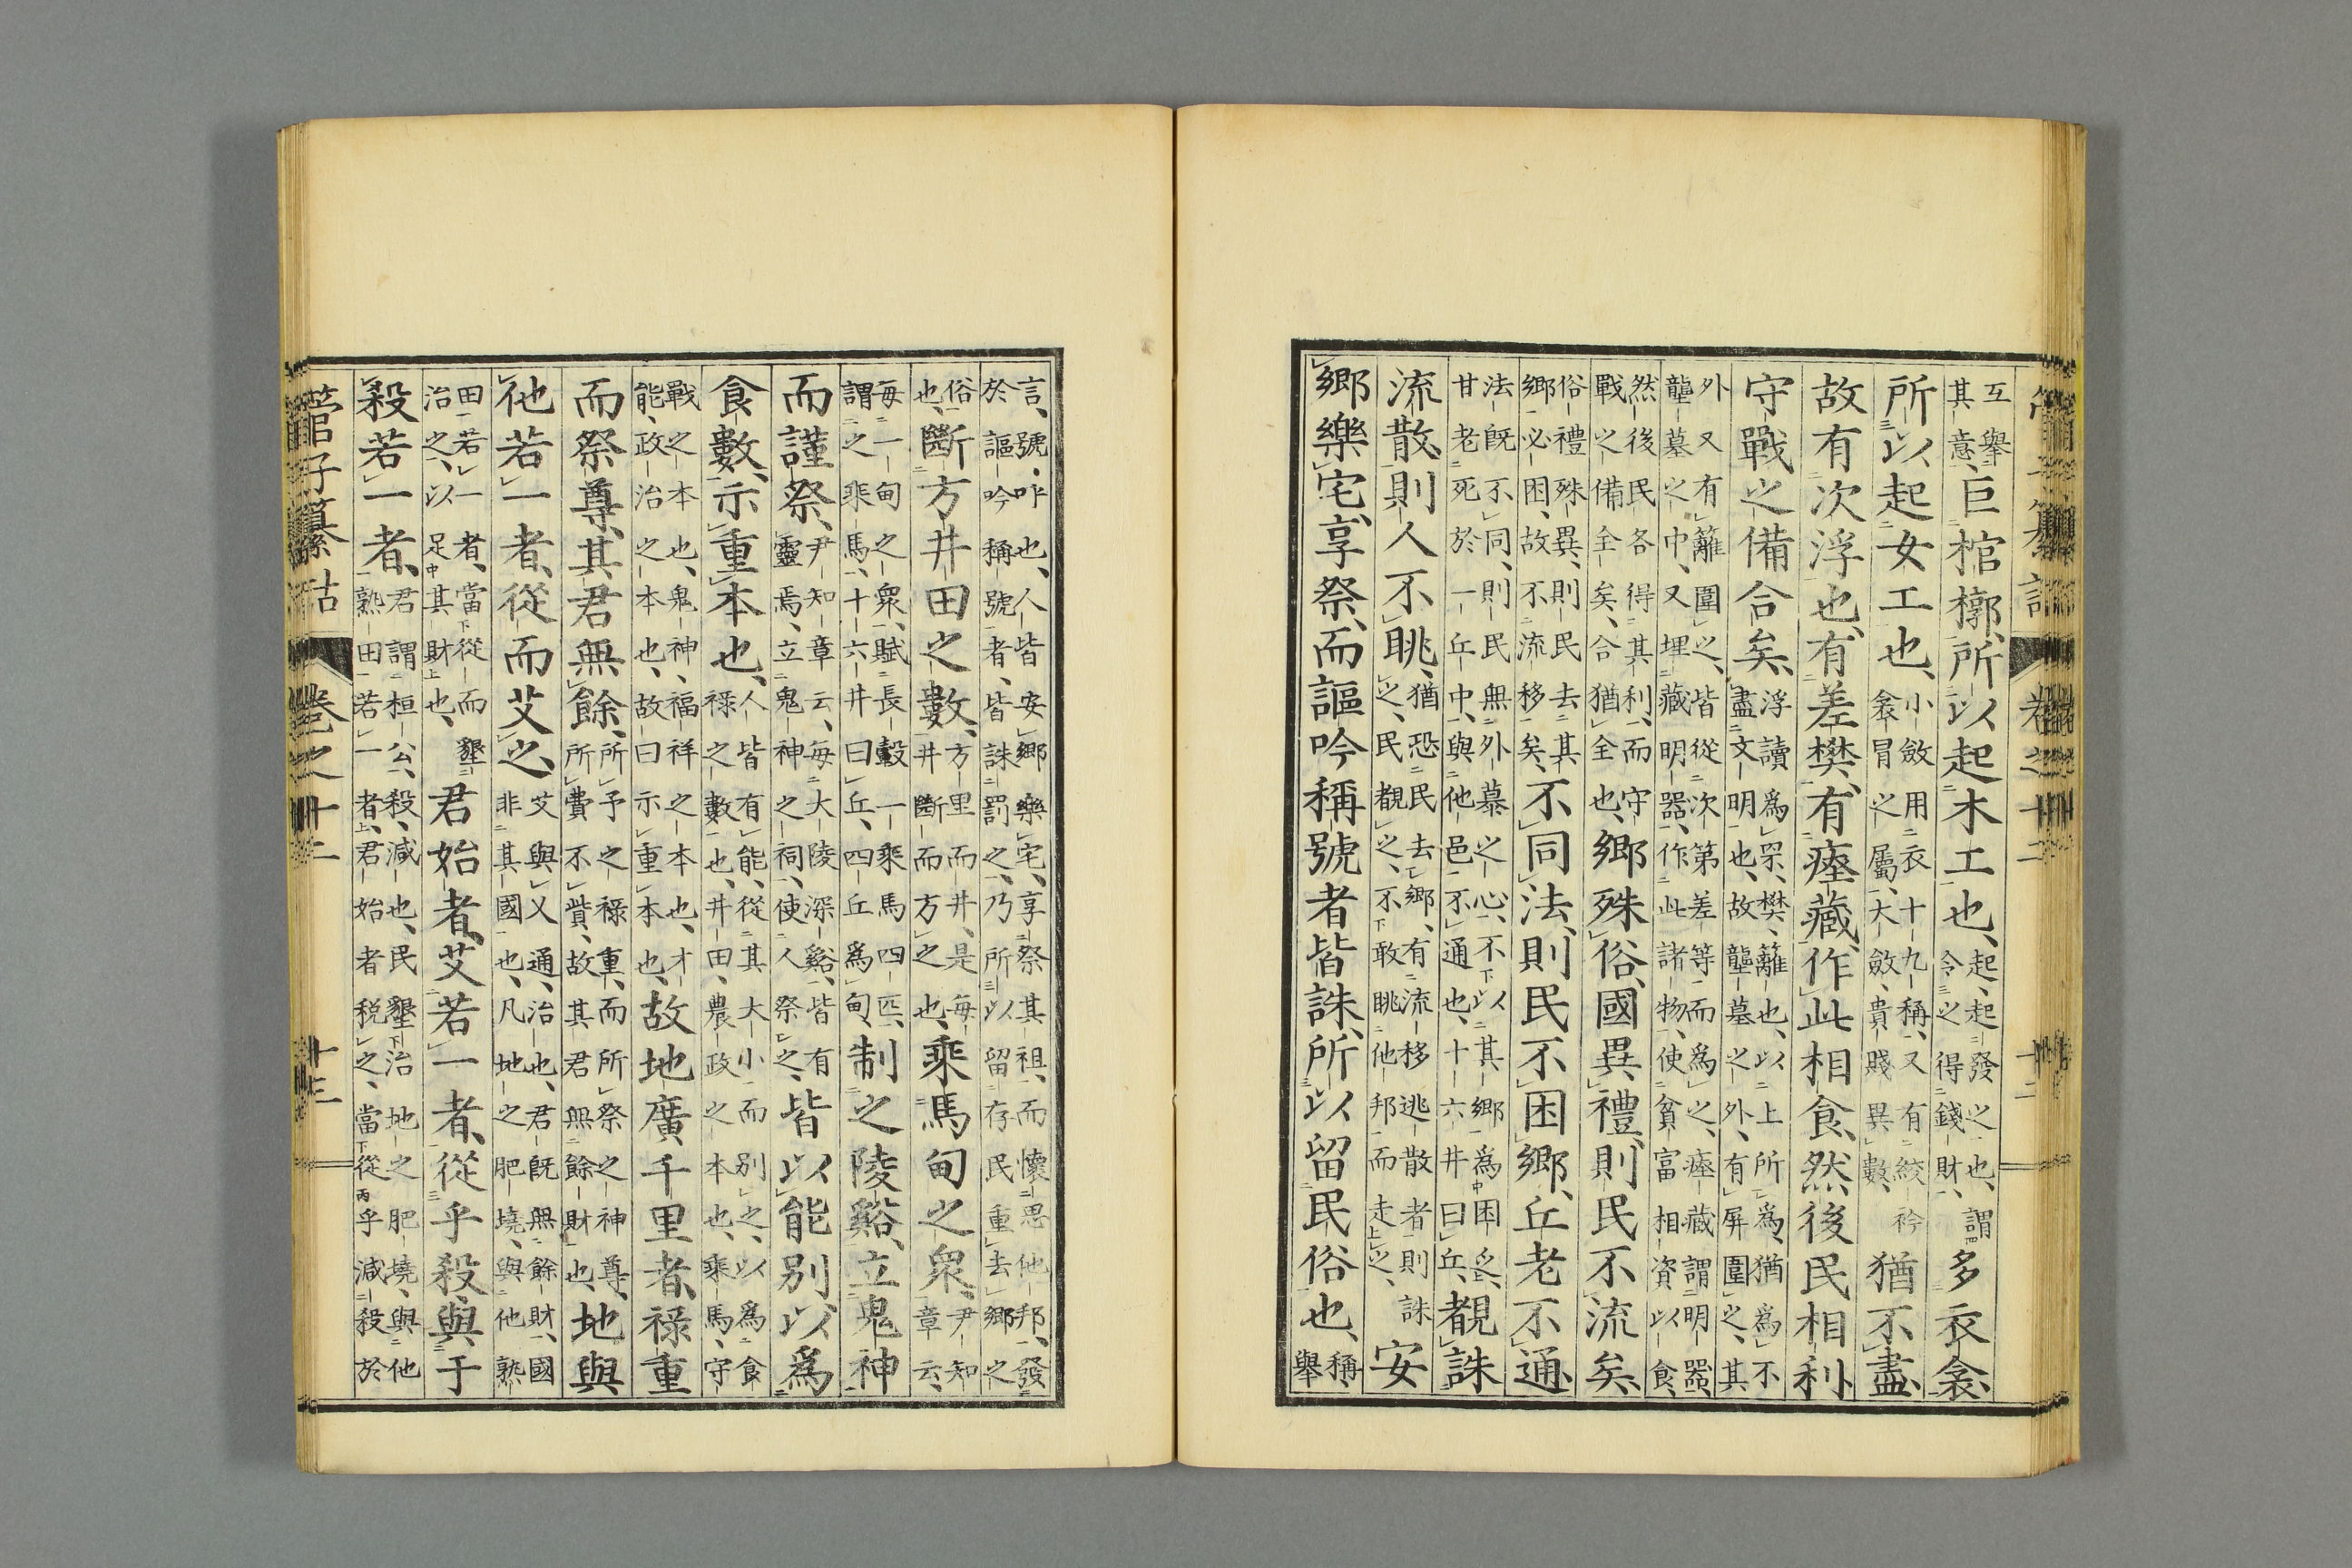 管子纂詁 卷之十二
互舉其意、巨棺槨、所以起木工也、起、起發之也、謂令之得錢財、多衣衾、
所以起女工也、小斂用衣十九稱、又有絞衿衾冒之屬、大斂、貴賤異數、猶不盡、
故有次浮也、有差樊、有瘞藏、作此相食、然後民相利、
守戰之備合矣、浮讀爲罘、樊、籬也、以上所爲、猶爲不盡文明也、故壟墓之外、有屏圍之、其
外又有籬圍之、皆從次第差等而爲之、瘞藏謂明器、壟墓之中、又埋藏明器、作此諸物、使貧富相資以食、
然後民各得其利、而守戰之備全矣、合猶全也、鄉殊俗、國異禮、則民不流矣、
俗禮殊異、則民去其鄉必困、故不流移矣、不同法、則民不困、鄉丘老不通、
法既不同、則民無外慕之心、不以其鄉爲困、甘老死於一丘中、與他邑不通也、十六井曰丘、覩誅
流散、則人不眺、猶恐民去鄉、有流移逃散者則誅之、民覩之、不敢眺他邦而走之、安
鄉樂宅、享祭、而謳吟稱號者皆誅、所以留民俗也、稱、舉
言、號、呼也、人皆安鄉樂宅、享祭其祖、而懷思他邦、發於謳吟稱號者、皆誅罰之、乃所以留存民重去鄉之
俗也、斷方井田之數、方里而井、是每井斷而方之也、乘馬甸之衆、尹知章云、
每一甸之衆、賦長轂一乘馬四匹、謂之乘馬、十六井曰丘、四丘爲甸、制之陵谿、立鬼神
而謹祭、尹知章云、每大陵深谿、皆有靈焉、立鬼神之祠、使人祭之、皆以能別以爲
食數、示重本也、人皆有能、從其大小而別之、以爲食祿之數也、井田、農政之本也、乘馬、守
戰之本也、鬼神、福祥之本也、才能、政治之本也、故曰示重本也、故地廣千里者、祿重
而祭尊、其君無餘、所予之祿重、而所祭之神尊、所費不貲、故其君無餘財也、地與
他若一者、從而艾之、艾與乂通、治也、君既無餘財、國非其國也、凡地之肥墝、與他熟
田若一者、當從而墾治之、以足其財也、君始者、艾若一者、從乎殺、與于
殺若一者、君謂桓公、殺、減也、民墾治地之肥墝、與他熟田若一者、君始者稅之、當從乎減殺於
管子纂詁 卷之十二 十三